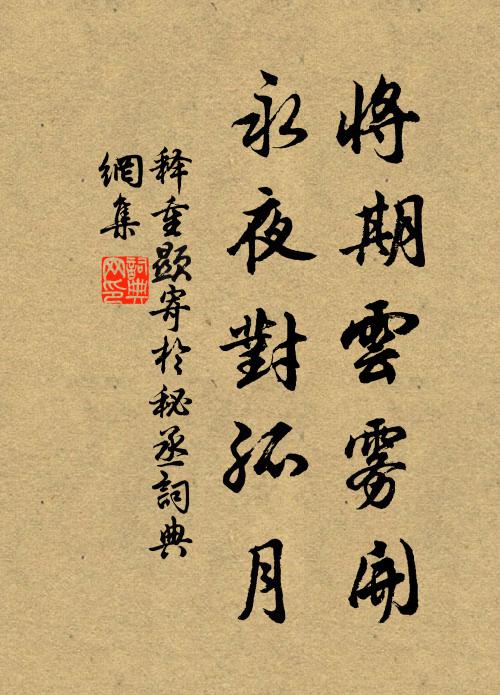 將期雲霧開
永夜對孤月
释重顯寄於秘丞詞典
網集
詞典
网印